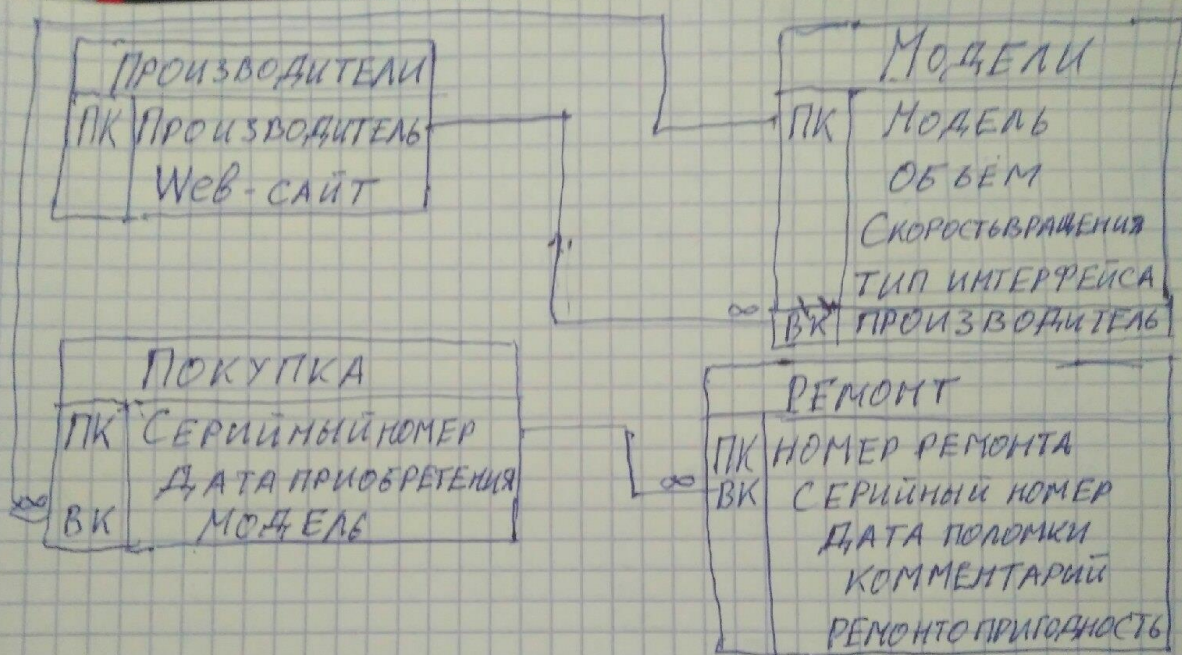 ПРОИЗВОДИТЕЛИ
ПК ПРОИЗВОДИТЕЛЬ
Web-САЙТ
МОДЕЛИ
ПК МОДЕЛЬ
ОБЪЕМ
СКОРОСТЬВРАЩЕНИЯ
ТИП ИНТЕРФЕЙСА
∞ ВК ПРОИЗВОДИТЕЛЬ
1
ПОКУПКА
ПК СЕРИЙНЫЙ НОМЕР
ДАТА ПРИОБРЕТЕНИЯ
∞ ВК МОДЕЛЬ
РЕМОНТ
ПК НОМЕР РЕМОНТА
∞ ВК СЕРИЙНЫЙ НОМЕР
ДАТА ПОЛОМКИ
КОММЕНТАРИЙ
РЕМОНТОПРИГОДНОСТЬ